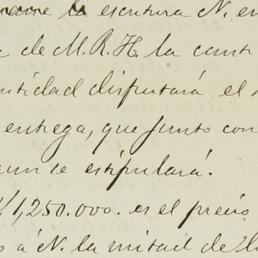 la escritura N. en
de M. R. H. la cant
ntidad disfrutará el
entrega, que junto con
aun se estipulará.
1,250.000. es el precio
o á N. la mitad de